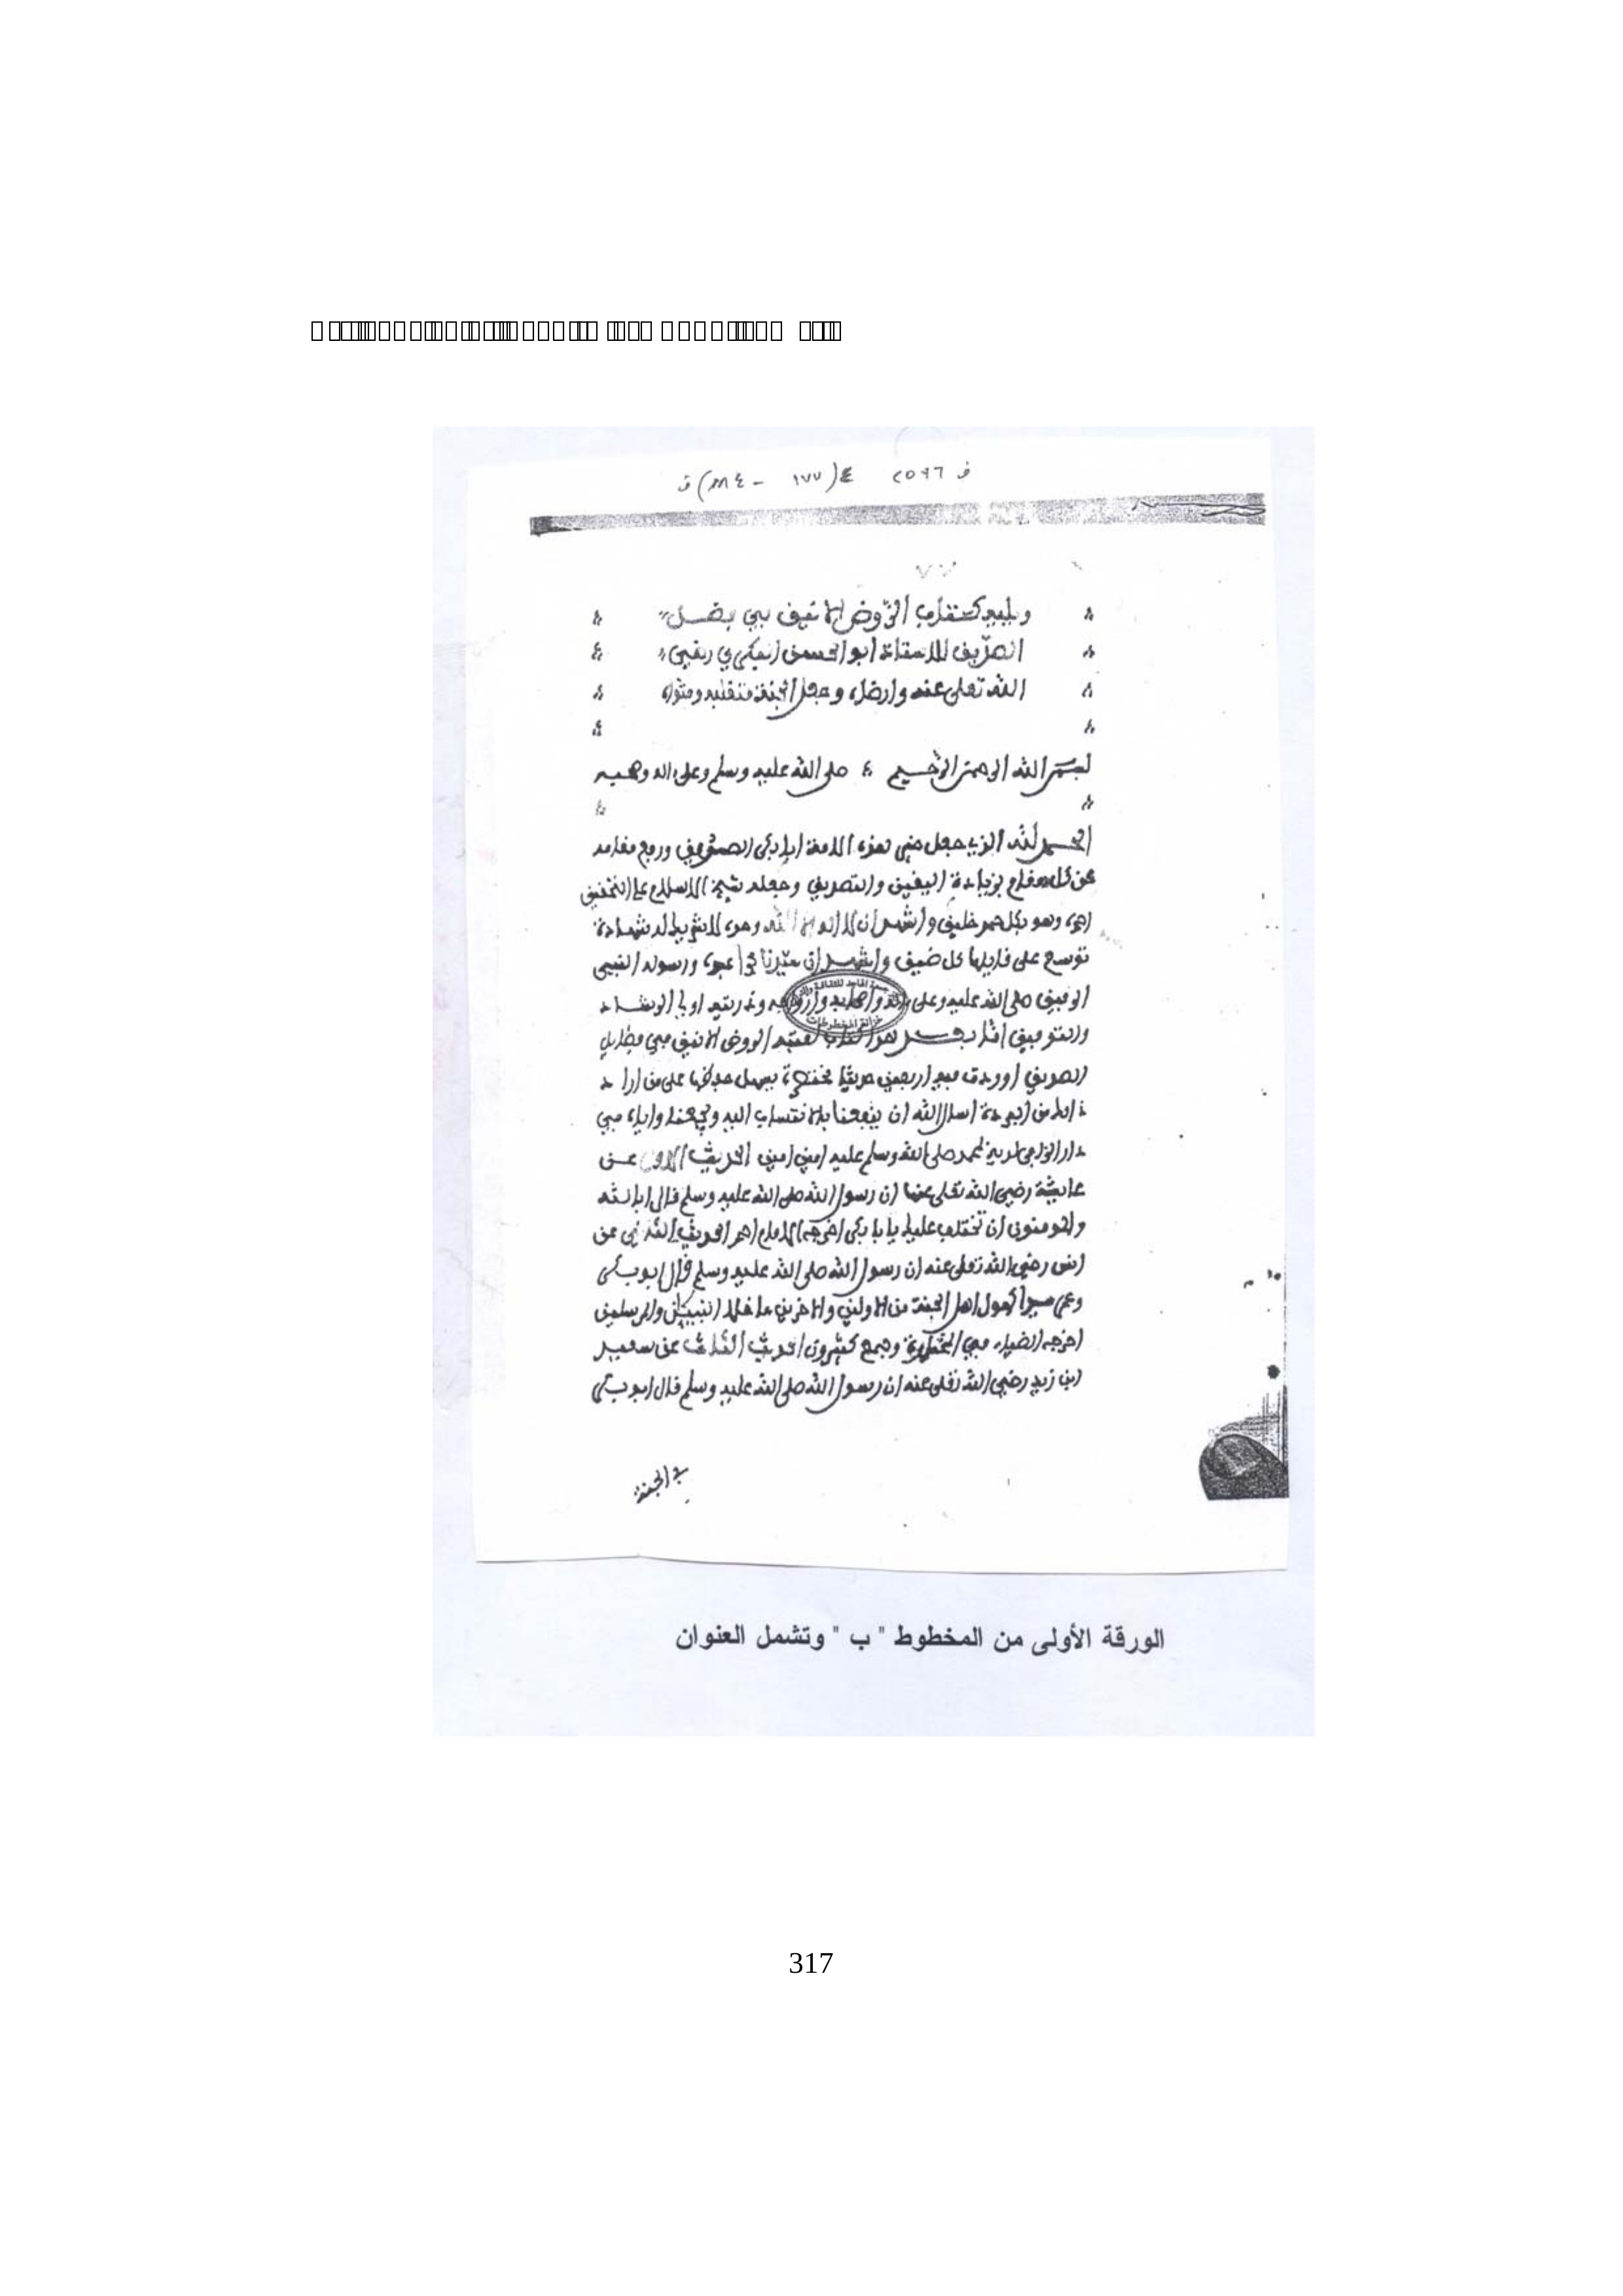 ويليه كتاب الروض الانيف في فضل
الصديق للاستاذ ابو الحسن البكري رضي
الله تعلى عنه وارضاه وجعل الجنة متقلبه ومثواه
بسم الله الرحمن الرحيم صلى الله عليه وسلم وعلى اله وصحبه
الحمد لله الذي جعل من هذه الامة ابا بكر الصديق ورفع مقامه
عن كل مقام بزيادة اليقين والتصديق وجعله شيخ الاسلام على التحقيق
وهو بكل خليق واشهد ان لا اله الا الله وحده لا شريك له شهادة
توسع على قايلها كل ضيق واشهد ان سيدنا عبده ورسوله النبي
الرفيق صلى الله عليه وعلى اله واصحابه وازواجه وذريته اولي الرشاد
والتوفيق هذا الكتاب لقبته الروض الانيق في فضايل
الصديق اوردت فيه اربعين حديثا مختصرة يسهل على من اراد
اسال الله ان ينفعنا بالانتساب اليه ويجمعنا واياه في
دار صلى الله وسلم عليه امين امين الحديث الاول عن
عايشة رضي الله تعلى عنها ان رسول الله صلى الله عليه وسلم قال ابا الله
والمومنون ان تختلف عليك يا بابكر اخرجه الامام احمد الحديث الثاني عن
انس رضي الله تعلى عنه ان رسول الله صلى الله عليه وسلم قال ابو بكر
وعمر سيدا كهول اهل الجنة من الاولين والاخرين ما خلا النبيين والمرسلين
اخرجه الضياء في المختارة وجمع كثيرون الحديث الثالث عن سعيد
ابن زيد رضي الله تعلى عنه ان رسول الله صلى الله عليه وسلم قال ابو بكر
في الجنة
الورقة الأولى من المخطوط " ب " وتشمل العنوان
317